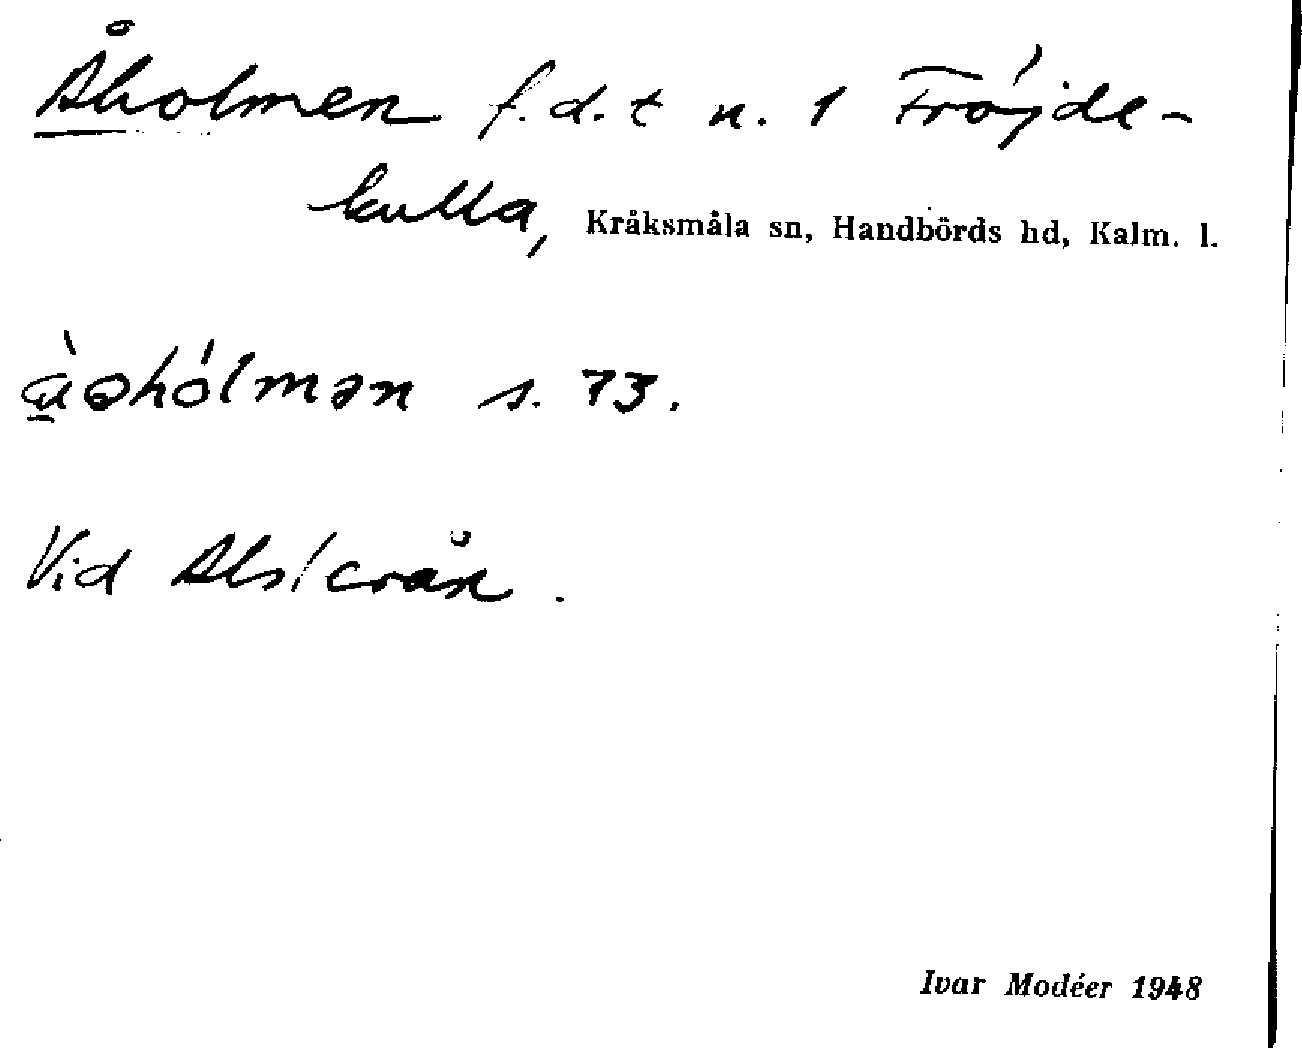 Åholmen f.d.t n. 1 Fröjde-
kulla, Kråksmåla sn, Handbörds hd, Kalm. l.
à̲əhólmən s. 73.
Vid Alsterån.
Ivar Modéer 1948